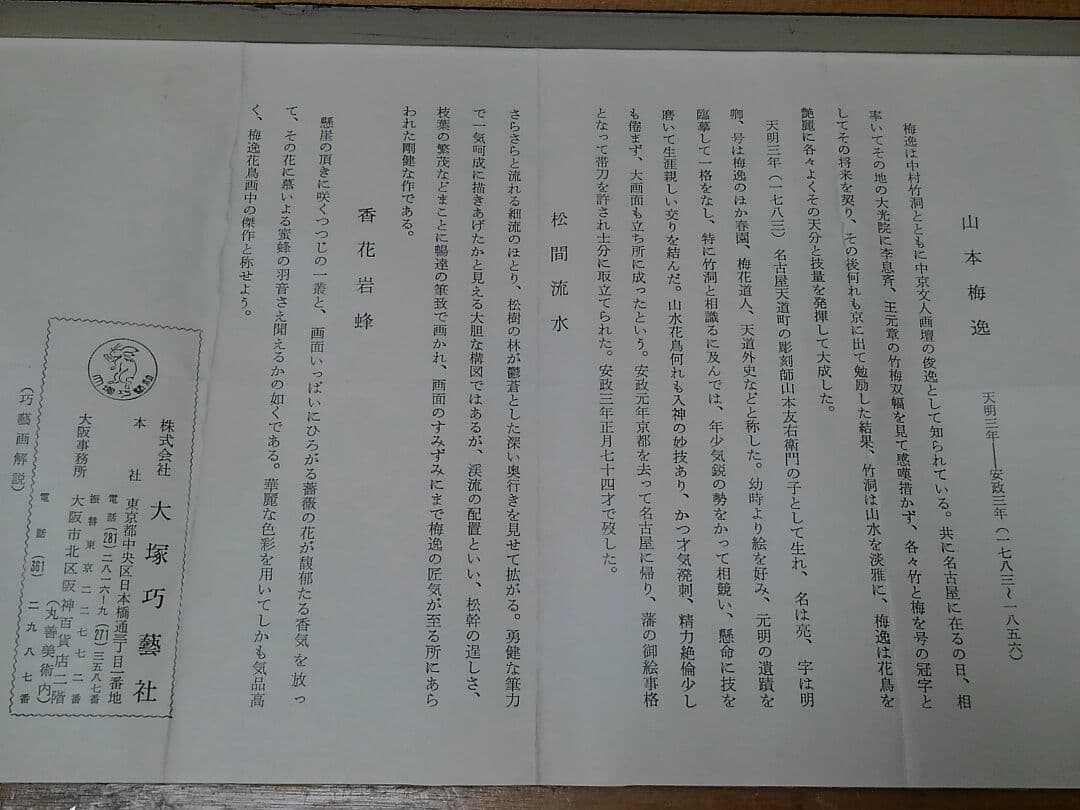 山本梅逸
天明三年――安政三年(一七八三〜一八五六)
梅逸は中村竹洞とともに中京文人画壇の俊逸として知られている。共に名古屋に在るの日、相
率いてその地の大光院に李息斉、王元章の竹梅双幅を見て感嘆措かず、各々竹と梅を号の冠字と
してその将来を契り、その後何れも京に出て勉励した結果、竹洞は山水を淡雅に、梅逸は花鳥を
艶麗に各々よくその天分と技量を発揮して大成した。
天明三年(一七八三)名古屋天道町の彫刻師山本友右衛門の子として生れ、名は亮、字は明
卿、号は梅逸のほか春園、梅花道人、天道外史などと称した。幼時より絵を好み、元明の遺蹟を
臨摹して一格をなし、特に竹洞と相識るに及んでは、年少気鋭の勢をかって相競い、懸命に技を
磨いて生涯親しい交りを結んだ。山水花鳥何れも入神の妙技あり、かつ才気溌剌、精力絶倫少し
も倦まず、大画面も立ち所に成ったという。安政元年京都を去って名古屋に帰り、藩の御絵事格
となって帯刀を許され士分に取立てられた。安政三年正月七十四才で歿した。
松間流水
さらさらと流れる細流のほとり、松樹の林が鬱蒼とした深い奥行きを見せて拡がる。勇健な筆力
で一気呵成に描きあげたかと見える大胆な構図ではあるが、渓流の配置といい、松幹の逞しさ、
枝葉の繁茂などまことに暢達の筆致で画かれ、画面のすみずみにまで梅逸の匠気が至る所にあら
われた剛健な作である。
香花岩蜂
懸崖の頂きに咲くつつじの一叢と、画面いっぱいにひろがる薔薇の花が馥郁たる香気を放っ
て、その花に慕いよる蜜蜂の羽音さえ聞えるかの如くである。華麗な色彩を用いてしかも気品高
く、梅逸花鳥画中の傑作と称せよう。
株式会社 大塚巧藝社
本社 東京都中央区日本橋通三丁目一番地
電話(281)二八一六〜九(271)三五八七番
振替東京二二七七二番
大阪事務所 大阪市北区阪神百貨店二階
(丸善美術内)
電話(361)二九八七番
(巧藝画解説)